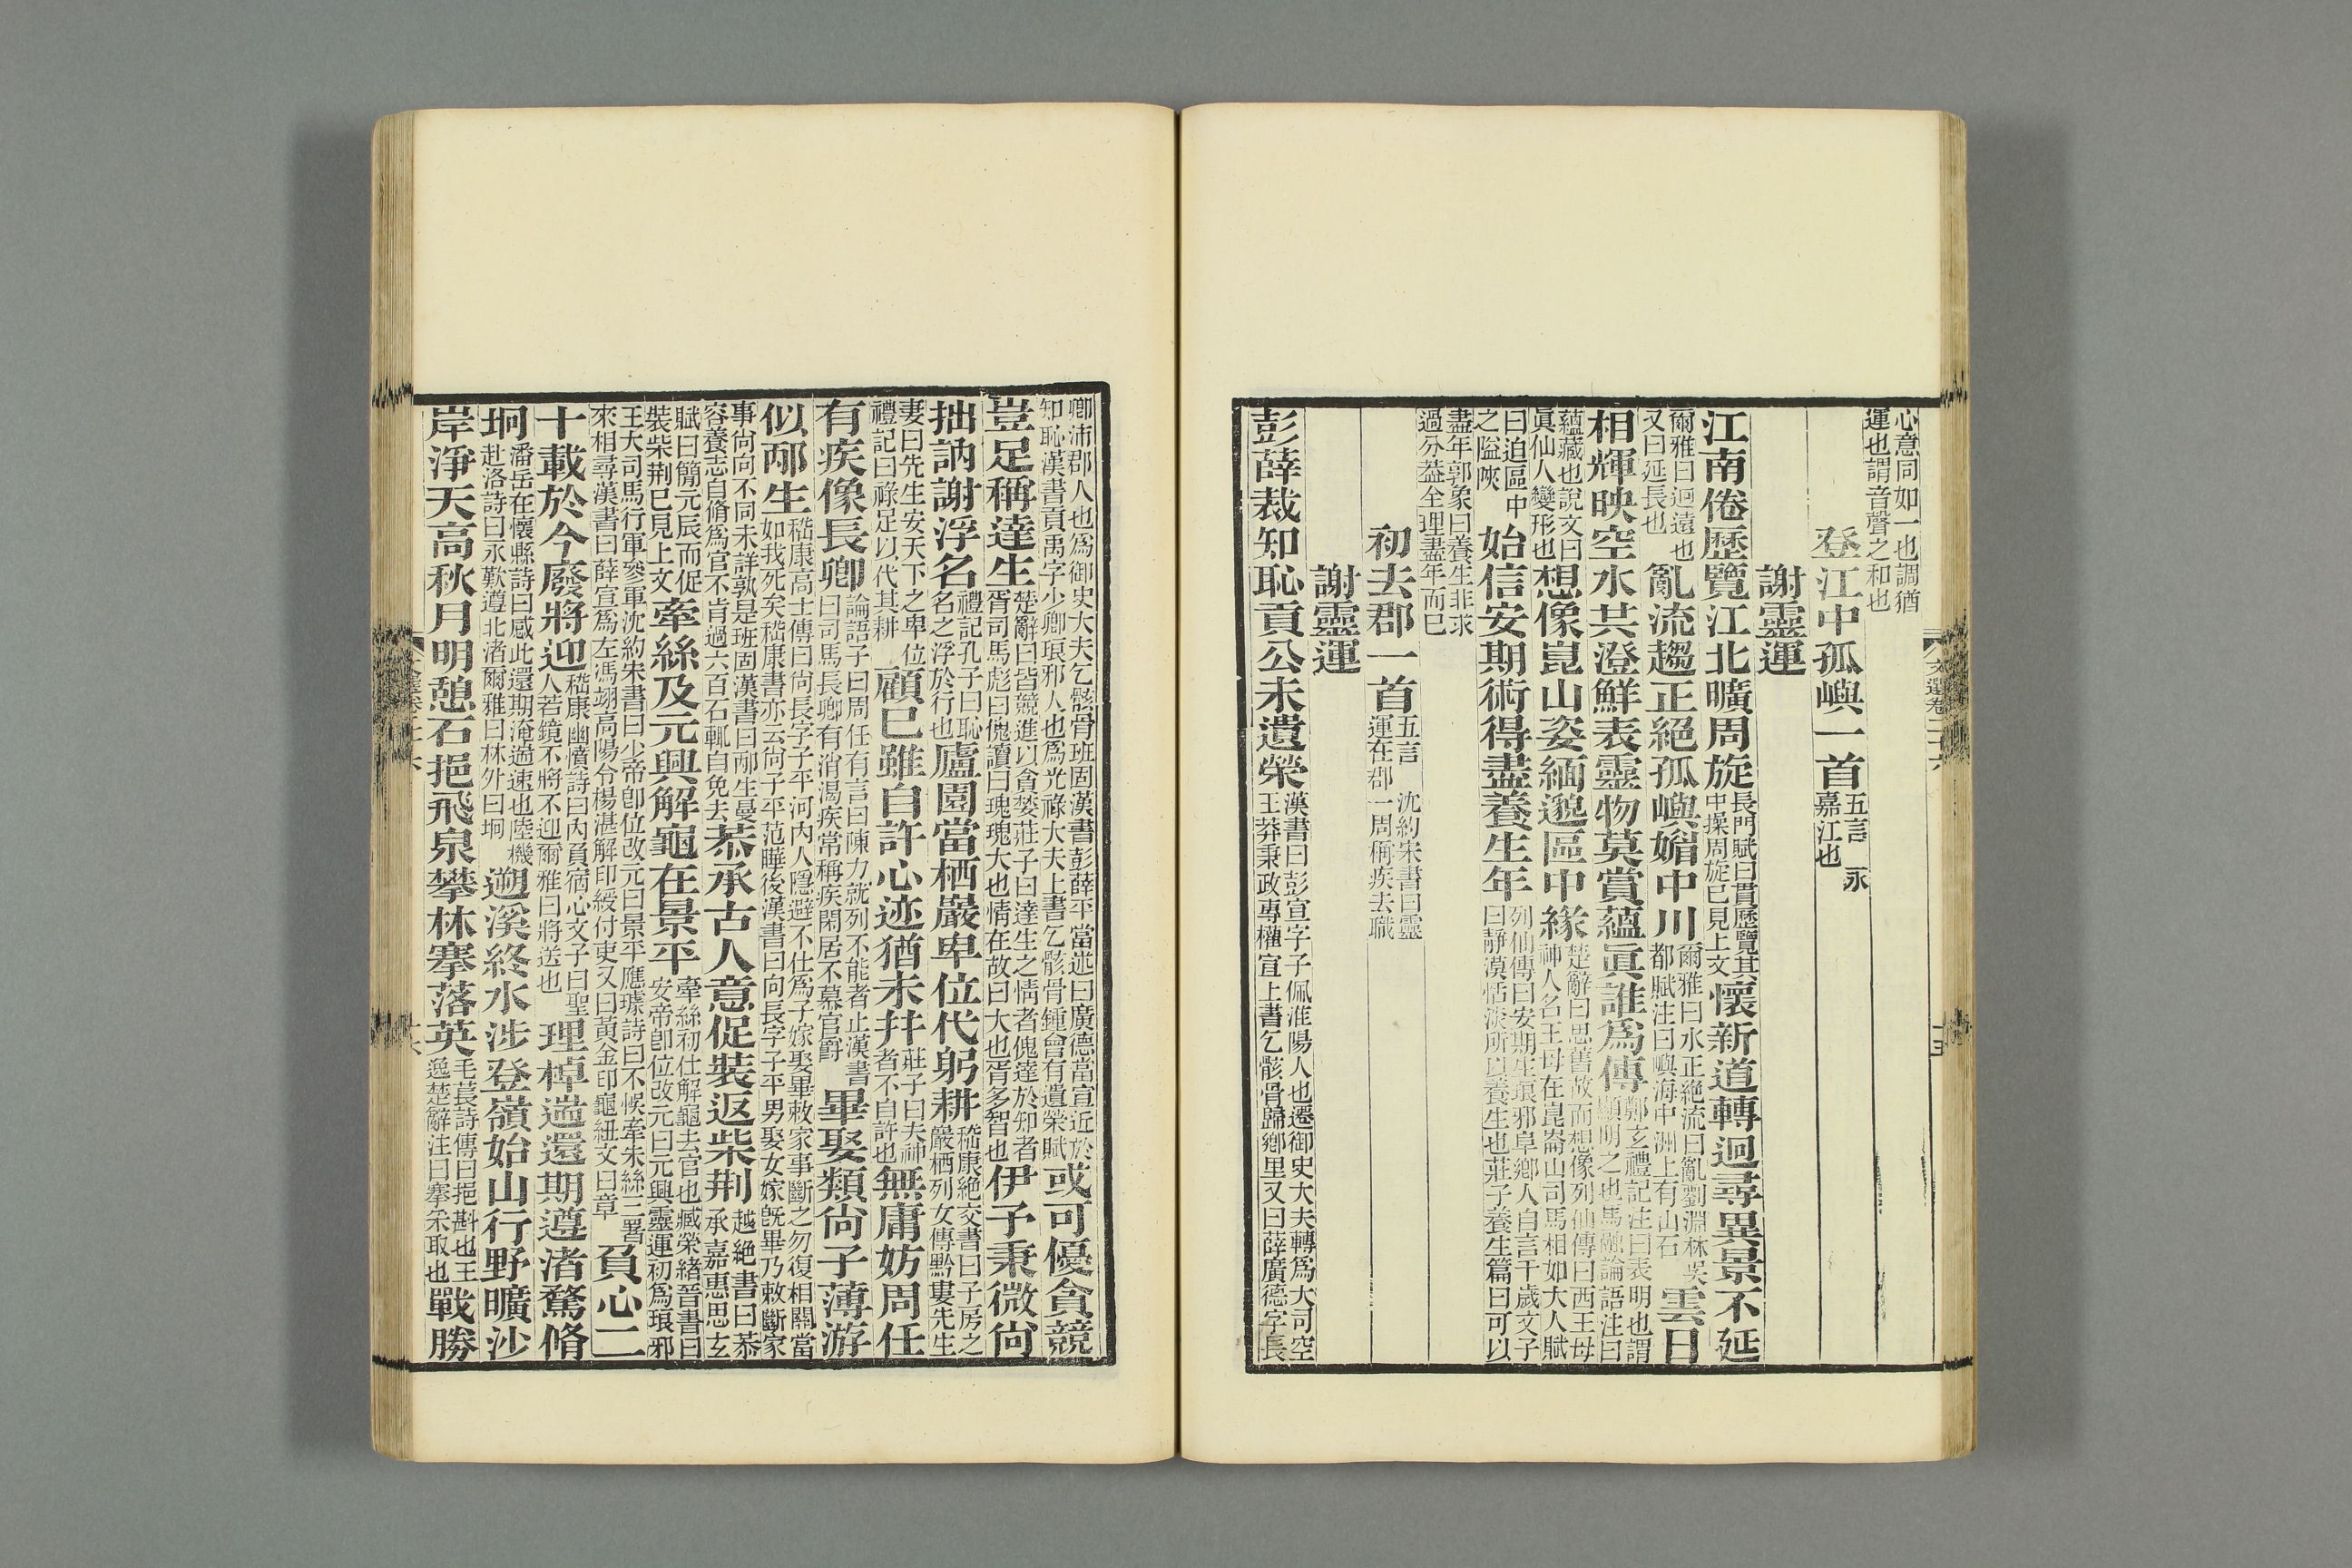 心意同如一也調猶
運也謂音聲之和也
登江中孤嶼一首五言 永嘉江也
謝靈運
江南倦歷覽江北曠周旋長門賦曰貫歷覽其中操周旋已見上文懷新道轉迥尋異景不延
爾雅曰迥遠也又曰延長也亂流趨正絕孤嶼媚中川爾雅曰水正絕流曰亂劉淵林吳都賦注曰嶼海中洲上有山石雲日
相輝映空水共澄鮮表靈物莫賞蘊眞誰爲傳鄭玄禮記注曰表明也謂顯明之也馬融論語注曰
蘊藏也說文曰眞仙人變形也想像崑山姿緬邈區中緣楚辭曰思舊故而想像列仙傳曰西王母神人名王母在崑崙山司馬相如大人賦
曰迫區中之隘陜始信安期術得盡養生年列仙傳曰安期生琅邪阜鄉人自言千歲文子曰靜漠恬淡所以養生也莊子養生篇曰可以
盡年郭象曰養生非求過分葢全理盡年而已
初去郡一首五言 沈約宋書曰靈運在郡一周稱疾去職
謝靈運
彭薛裁知恥貢公未遺榮漢書曰彭宣字子佩淮陽人也遷御史大夫轉爲大司空王莽秉政專權宣上書乞骸骨歸鄉里又曰薛廣德字長
卿沛郡人也爲御史大夫乞骸骨班固漢書彭薛平當述曰廣德當宣近於知恥漢書貢禹字少卿琅邪人也爲光祿大夫上書乞骸骨鍾會有遺榮賦或可優貪競
豈足稱達生楚辭曰皆競進以貪婪莊子曰達生之情者傀達於知者胥司馬彪曰傀讀曰瑰瑰大也情在故曰大也胥多智也伊予秉微尙
拙訥謝浮名禮記孔子曰恥名之浮於行也廬園當栖巖卑位代躬耕嵇康絕交書曰子房之巖栖列女傳黔婁先生
妻曰先生安天下之卑位禮記曰祿足以代其耕顧已雖自許心迹猶未幷莊子曰夫神者不自許也無庸妨周任
有疾像長卿論語子曰周任有言曰陳力就列不能者止漢書曰司馬長卿有消渴疾常稱疾閑居不慕官爵畢娶類尙子薄游
似邴生嵇康高士傳曰尙長字子平河內人隱避不仕爲子嫁娶畢敕家事斷之勿復相關當如我死矣嵇康書亦云尙子平范曄後漢書曰向長字子平男娶女嫁旣畢乃敕斷家
事尙向不同未詳孰是班固漢書曰邴生曼容養志自脩爲官不肯過六百石輒自免去恭承古人意促裝返柴荆越絕書曰恭承嘉惠思玄
賦曰簡元辰而促裝柴荆已見上文牽絲及元興解龜在景平牽絲初仕解龜去官也臧榮緖晉書曰安帝卽位改元曰元興靈運初爲琅邪
王大司馬行軍參軍沈約宋書曰少帝卽位改元曰景平應璩詩曰不悞牽朱絲三署來相尋漢書曰薛宣爲左馮翊高陽令楊湛解印綬付吏又曰黃金印龜紐文曰章負心二
十載於今廢將迎嵇康幽憤詩曰內負宿心文子曰聖人若鏡不將不迎爾雅曰將送也理棹遄還期遵渚騖脩
坰潘岳在懷縣詩曰感此還期淹遄速也陸機赴洛詩曰永歎遵北渚爾雅曰林外曰坰遡溪終水涉登嶺始山行野曠沙
岸淨天高秋月明憩石挹飛泉攀林搴落英毛萇詩傳曰挹㪺也王逸楚辭注曰搴采取也戰勝
文選卷二十六